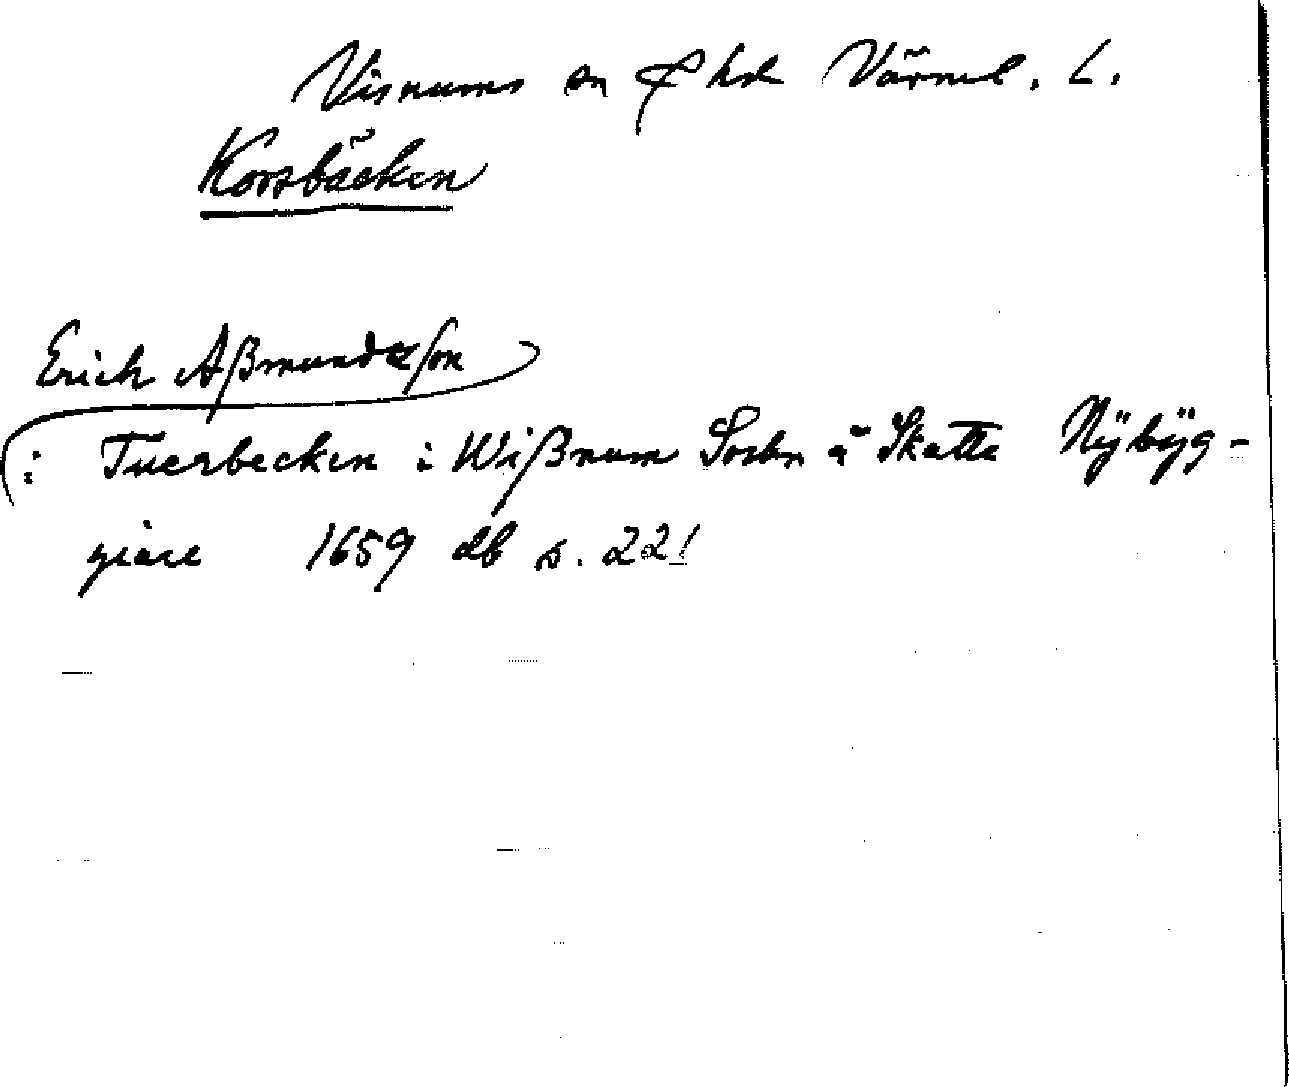 Visnums sn & hd Värml. L.
Korsbäcken
Erich Aßmundzson
i Tuerbecken i Wißnum Sochn ä Skatte Nÿbÿg-
giare 1659 db s. 221